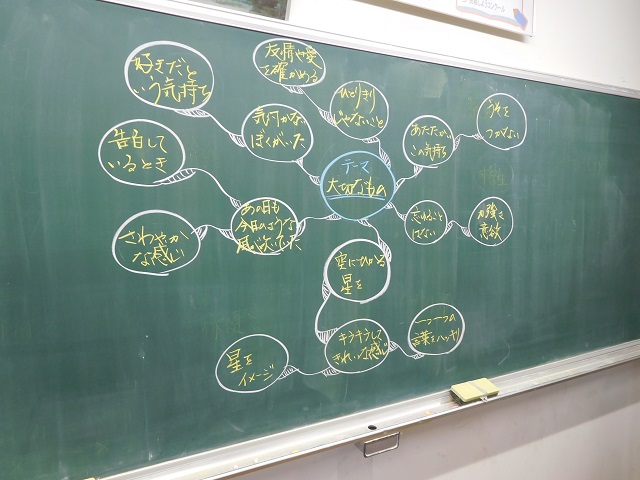 テーマ
大切なもの
友情や愛
を確かめる
ひとりきり
じゃないこと
好きだと
いう気持ち
気付かない
ぼくがいた
告白して
いるとき
さわやか
な感じ
あの日も
今日のような
風が吹いてた
空にひかる
星を
キラキラして
きれいな感じ
星を
イメージ
一つ一つの
言葉をハッキリ
あたたかい
この気持ち
うそを
つかない
忘れること
はない
力強さ
意欲